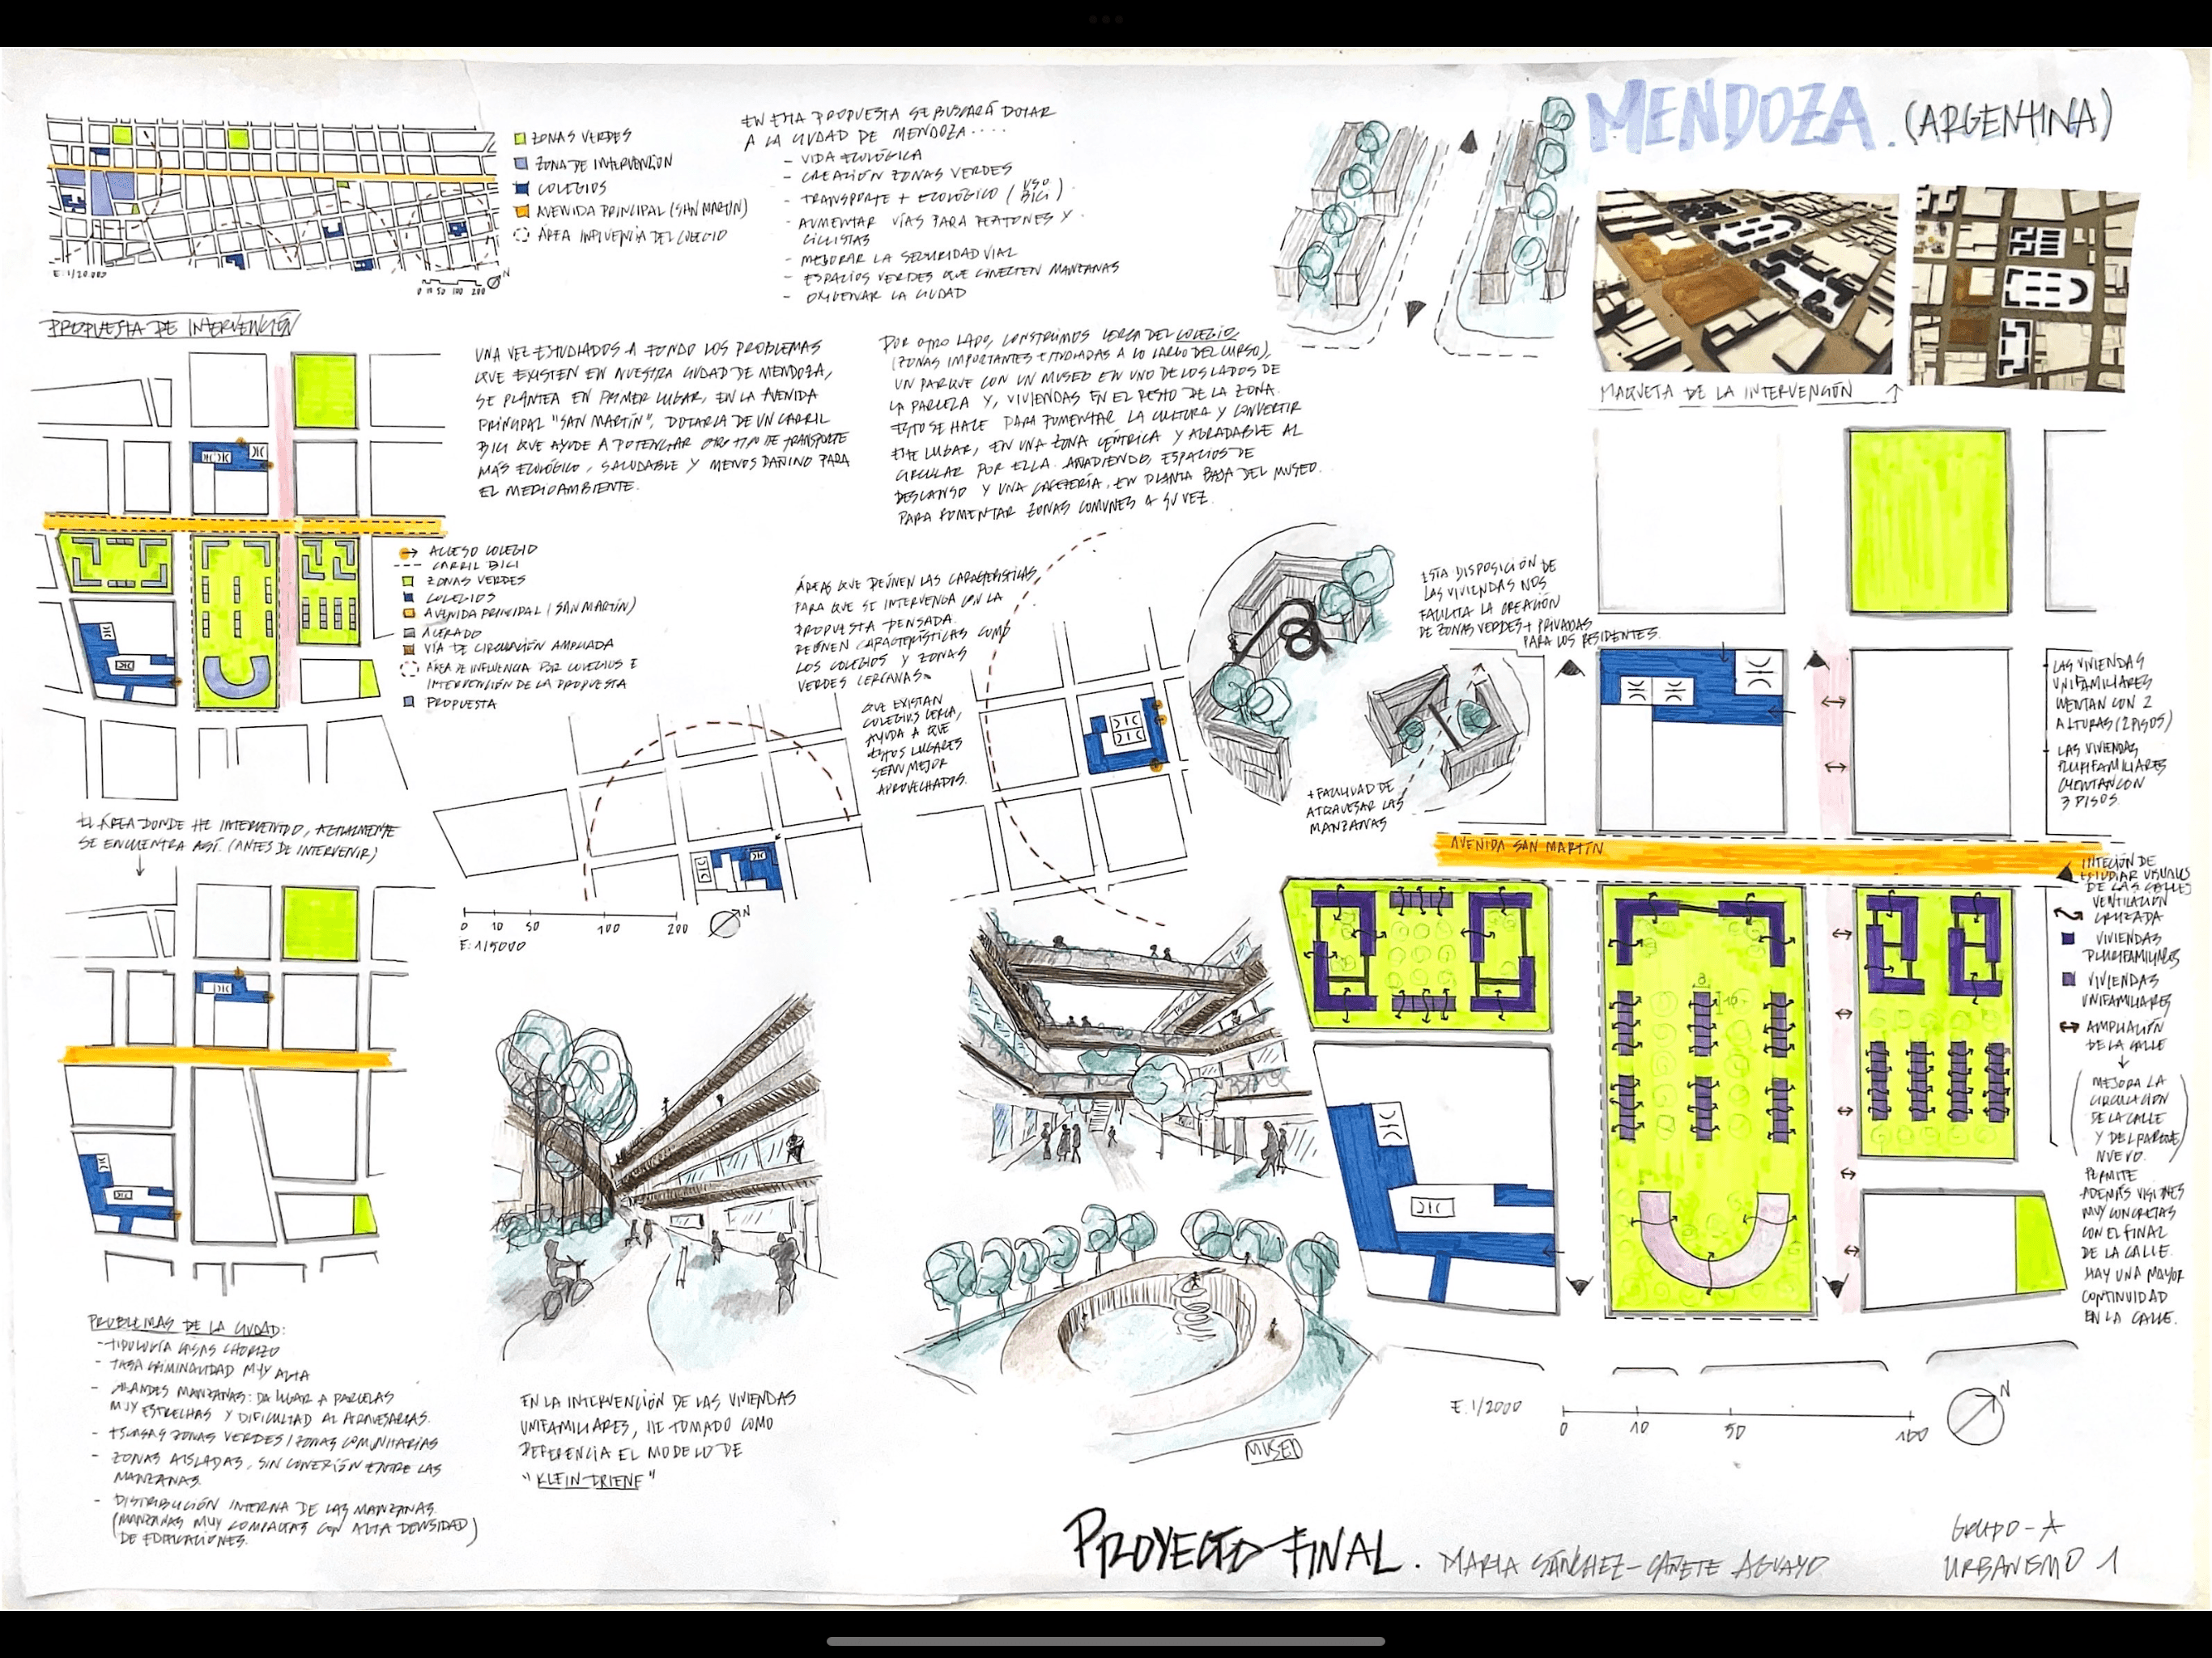 MENDOZA. (ARGENTINA)
ZONAS VERDES
ZONA DE INTERVENCIÓN
COLEGIOS
AVENIDA PRINCIPAL (SAN MARTIN)
ÁREA INFLUENCIA DEL COLEGIO
E: 1/20 000
0 10 50 100 200
N
EN ESTA PROPUESTA SE BUSCARÁ DOTAR
A LA CIUDAD DE MENDOZA....
- VIDA ECOLÓGICA
- CREACIÓN ZONAS VERDES
- TRANSPORTE + ECOLÓGICO (USO BICI)
- AUMENTAR VÍAS PARA PEATONES Y
CICLISTAS
- MEJORAR LA SEGURIDAD VIAL
- ESPACIOS VERDES QUE CONECTEN MANZANAS
- OXIGENAR LA CIUDAD
MAQUETA DE LA INTERVENCIÓN
PROPUESTA DE INTERVENCIÓN
UNA VEZ ESTUDIADOS A FONDO LOS PROBLEMAS
QUE EXISTEN EN NUESTRA CIUDAD DE MENDOZA,
SE PLANTEA EN PRIMER LUGAR, EN LA AVENIDA
PRINCIPAL "SAN MARTÍN", DOTARLA DE UN CARRIL
BICI QUE AYUDE A POTENCIAR OTRO TIPO DE TRANSPORTE
MÁS ECOLÓGICO, SALUDABLE Y MENOS DAÑINO PARA
EL MEDIOAMBIENTE.
POR OTRO LADO, CONSTRUIMOS CERCA DEL COLEGIO,
(ZONAS IMPORTANTES ESTUDIADAS A LO LARGO DEL CURSO),
UN PARQUE CON UN MUSEO EN UNO DE LOS LADOS DE
LA PARCELA Y, VIVIENDAS EN EL RESTO DE LA ZONA.
ESTO SE HACE PARA FOMENTAR LA CULTURA Y CONVERTIR
ESTE LUGAR, EN UNA ZONA CÉNTRICA Y AGRADABLE AL
CIRCULAR POR ELLA. AÑADIENDO, ESPACIOS DE
DESCANSO Y UNA CAFETERÍA, EN PLANTA BAJA DEL MUSEO.
PARA FOMENTAR ZONAS COMUNES A SU VEZ.
ACCESO COLEGIO
CARRIL BICI
ZONAS VERDES
COLEGIOS
AVENIDA PRINCIPAL (SAN MARTÍN)
ACERADO
VÍA DE CIRCULACIÓN AMPLIADA
ÁREA DE INFLUENCIA POR COLEGIOS E
INTERVENCIÓN DE LA PROPUESTA
PROPUESTA
ÁREAS QUE REÚNEN LAS CARACTERÍSTICAS
PARA QUE SE INTERVENGA CON LA
PROPUESTA PENSADA.
REÚNEN CARACTERÍSTICAS COMO
LOS COLEGIOS Y ZONAS
VERDES CERCANAS.
QUE EXISTAN
COLEGIOS CERCA,
AYUDA A QUE
ESTOS LUGARES
SEAN MEJOR
APROVECHADOS.
ESTA DISPOSICIÓN DE
LAS VIVIENDAS NOS
FACILITA LA CREACIÓN
DE ZONAS VERDES + PRIVADAS
PARA LOS RESIDENTES.
+ FACILIDAD DE
ATRAVESAR LAS
MANZANAS
LAS VIVIENDAS
UNIFAMILIARES
CUENTAN CON 2
ALTURAS (2 PISOS)
LAS VIVIENDAS
PLURIFAMILIARES
CUENTAN CON
3 PISOS.
AVENIDA SAN MARTÍN
INTECIÓN DE
ESTUDIAR VISUALES
DE LAS CALLES
VENTILACIÓN
CRUZADA
VIVIENDAS
PLURIFAMILIARES
VIVIENDAS
UNIFAMILIARES
AMPLIACIÓN
DE LA CALLE
(MEJORA LA
CIRCULACIÓN
DE LA CALLE
Y DEL PARQUE
NUEVO.)
PERMITE
ADEMÁS VISIONES
MUY CONCRETAS
CON EL FINAL
DE LA CALLE.
HAY UNA MAYOR
CONTINUIDAD
EN LA CALLE.
8
16
EL ÁREA DONDE HE INTERVENIDO, ACTUALMENTE
SE ENCUENTRA ASÍ. (ANTES DE INTERVENIR)
0 10 50 100 200
N
E: 1/5000
PROBLEMAS DE LA CIUDAD:
- TIPOLOGÍA CASAS CHORIZO
- TASA CRIMINALIDAD MUY ALTA
- GRANDES MANZANAS: DA LUGAR A PARCELAS
MUY ESTRECHAS Y DIFICULTAD AL ATRAVESARLAS.
- ESCASAS ZONAS VERDES / ZONAS COMUNITARIAS
- ZONAS AISLADAS, SIN CONEXIÓN ENTRE LAS
MANZANAS.
- DISTRIBUCIÓN INTERNA DE LAS MANZANAS.
(MANZANAS MUY COMPACTAS CON ALTA DENSIDAD)
DE EDIFICACIONES.
EN LA INTERVENCIÓN DE LAS VIVIENDAS
UNIFAMILIARES, HE TOMADO COMO
REFERENCIA EL MODELO DE
"KLEIN-DRIENE"
MUSEO
E. 1/2000
0 10 50 100
N
PROYECTO FINAL. MARIA SÁNCHEZ-CAÑETE AGUAYO
GRUPO-A
URBANISMO 1